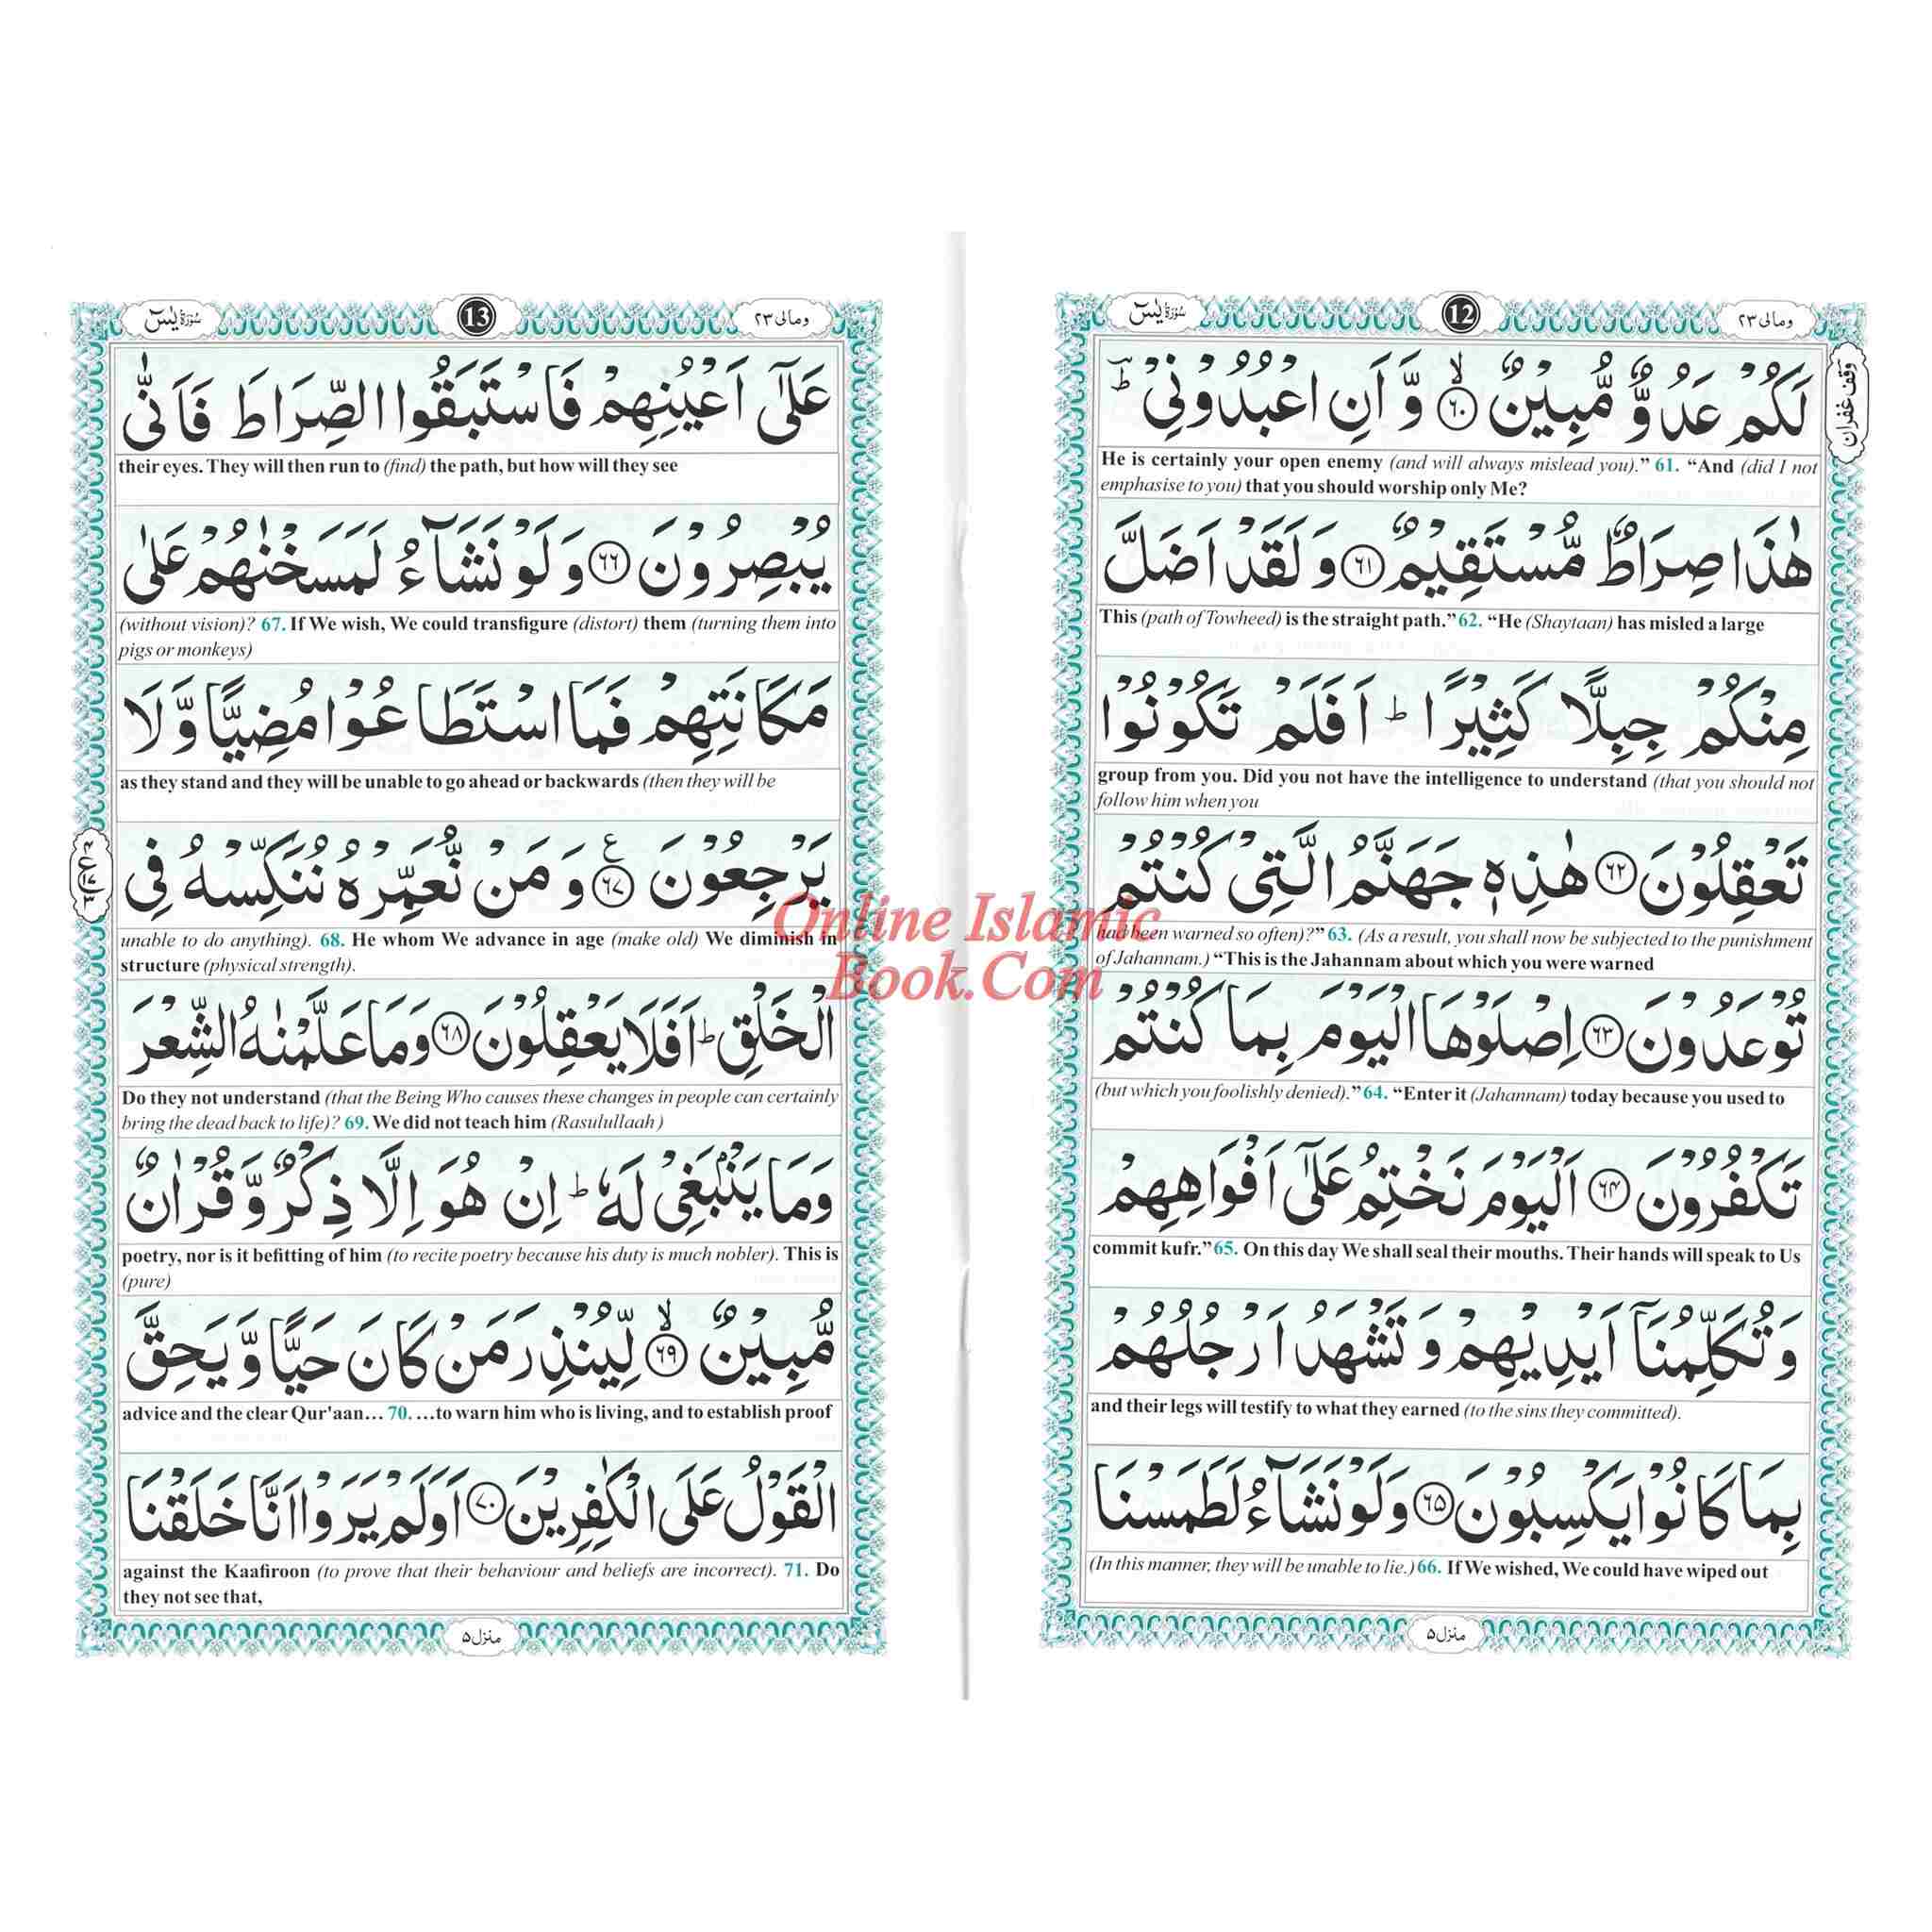 وقف غفران
ومالی ۲۳
12
سُوْرَةُ يٰسٓ
لَكُمْ عَدُوٌّ مُّبِيْنٌ ۙ‏ ﴿۶۰﴾ وَّ اَنِ اعْبُدُوْنِيْ ؔؕ
He is certainly your open enemy (and will always mislead you).” 61. “And (did I not
emphasise to you) that you should worship only Me?
هٰذَا صِرَاطٌ مُّسْتَقِيْمٌ ﴿۶۱﴾ وَ لَقَدْ اَضَلَّ
This (path of Towheed) is the straight path.” 62. “He (Shaytaan) has misled a large
مِنْكُمْ جِبِلًّا كَثِيْرًا ؕ اَفَلَمْ تَكُوْنُوْا
group from you. Did you not have the intelligence to understand (that you should not
follow him when you
تَعْقِلُوْنَ ﴿۶۲﴾ هٰذِهٖ جَهَنَّمُ الَّتِيْ كُنْتُمْ
had been warned so often)?” 63. (As a result, you shall now be subjected to the punishment
of Jahannam.) “This is the Jahannam about which you were warned
تُوْعَدُوْنَ ﴿۶۳﴾ اِصْلَوْهَا الْيَوْمَ بِمَا كُنْتُمْ
(but which you foolishly denied).” 64. “Enter it (Jahannam) today because you used to
تَكْفُرُوْنَ ﴿۶۴﴾ اَلْيَوْمَ نَخْتِمُ عَلٰٓى اَفْوَاهِهِمْ
commit kufr.” 65. On this day We shall seal their mouths. Their hands will speak to Us
وَ تُكَلِّمُنَاۤ اَيْدِيْهِمْ وَ تَشْهَدُ اَرْجُلُهُمْ
and their legs will testify to what they earned (to the sins they committed).
بِمَا كَانُوْا يَكْسِبُوْنَ ﴿۶۵﴾ وَلَوْ نَشَآءُ لَطَمَسْنَا
(In this manner, they will be unable to lie.) 66. If We wished, We could have wiped out
منزل ۵
ومالی ۲۳
13
سُوْرَةُ يٰسٓ
عَلٰٓى اَعْيُنِهِمْ فَاسْتَبَقُوا الصِّرَاطَ فَاَنّٰى
their eyes. They will then run to (find) the path, but how will they see
يُبْصِرُوْنَ ﴿۶۶﴾ وَ لَوْ نَشَآءُ لَمَسَخْنٰهُمْ عَلٰى
(without vision)? 67. If We wish, We could transfigure (distort) them (turning them into
pigs or monkeys)
مَكَانَتِهِمْ فَمَا اسْتَطَاعُوْا مُضِيًّا وَّ لَا
as they stand and they will be unable to go ahead or backwards (then they will be
يَرْجِعُوْنَ ﴿۶۷﴾ ع وَ مَنْ نُّعَمِّرْهُ نُنَكِّسْهُ فِي
unable to do anything). 68. He whom We advance in age (make old) We diminish in
structure (physical strength).
الْخَلْقِ ؕ اَفَلَا يَعْقِلُوْنَ ﴿۶۸﴾ وَمَا عَلَّمْنٰهُ الشِّعْرَ
Do they not understand (that the Being Who causes these changes in people can certainly
bring the dead back to life)? 69. We did not teach him (Rasulullaah )
وَمَا يَنْۢبَغِيْ لَهٗ ؕ اِنْ هُوَ اِلَّا ذِكْرٌ وَّ قُرْاٰنٌ
poetry, nor is it befitting of him (to recite poetry because his duty is much nobler). This is
(pure)
مُّبِيْنٌ ۙ‏ ﴿۶۹﴾ لِّيُنْذِرَ مَنْ كَانَ حَيًّا وَّ يَحِقَّ
advice and the clear Qur'aan… 70. …to warn him who is living, and to establish proof
الْقَوْلُ عَلَى الْكٰفِرِيْنَ ﴿۷۰﴾ اَوَلَمْ يَرَوْا اَنَّا خَلَقْنَا
against the Kaafiroon (to prove that their behaviour and beliefs are incorrect). 71. Do
they not see that,
منزل ۵
Online Islamic
Book.Com